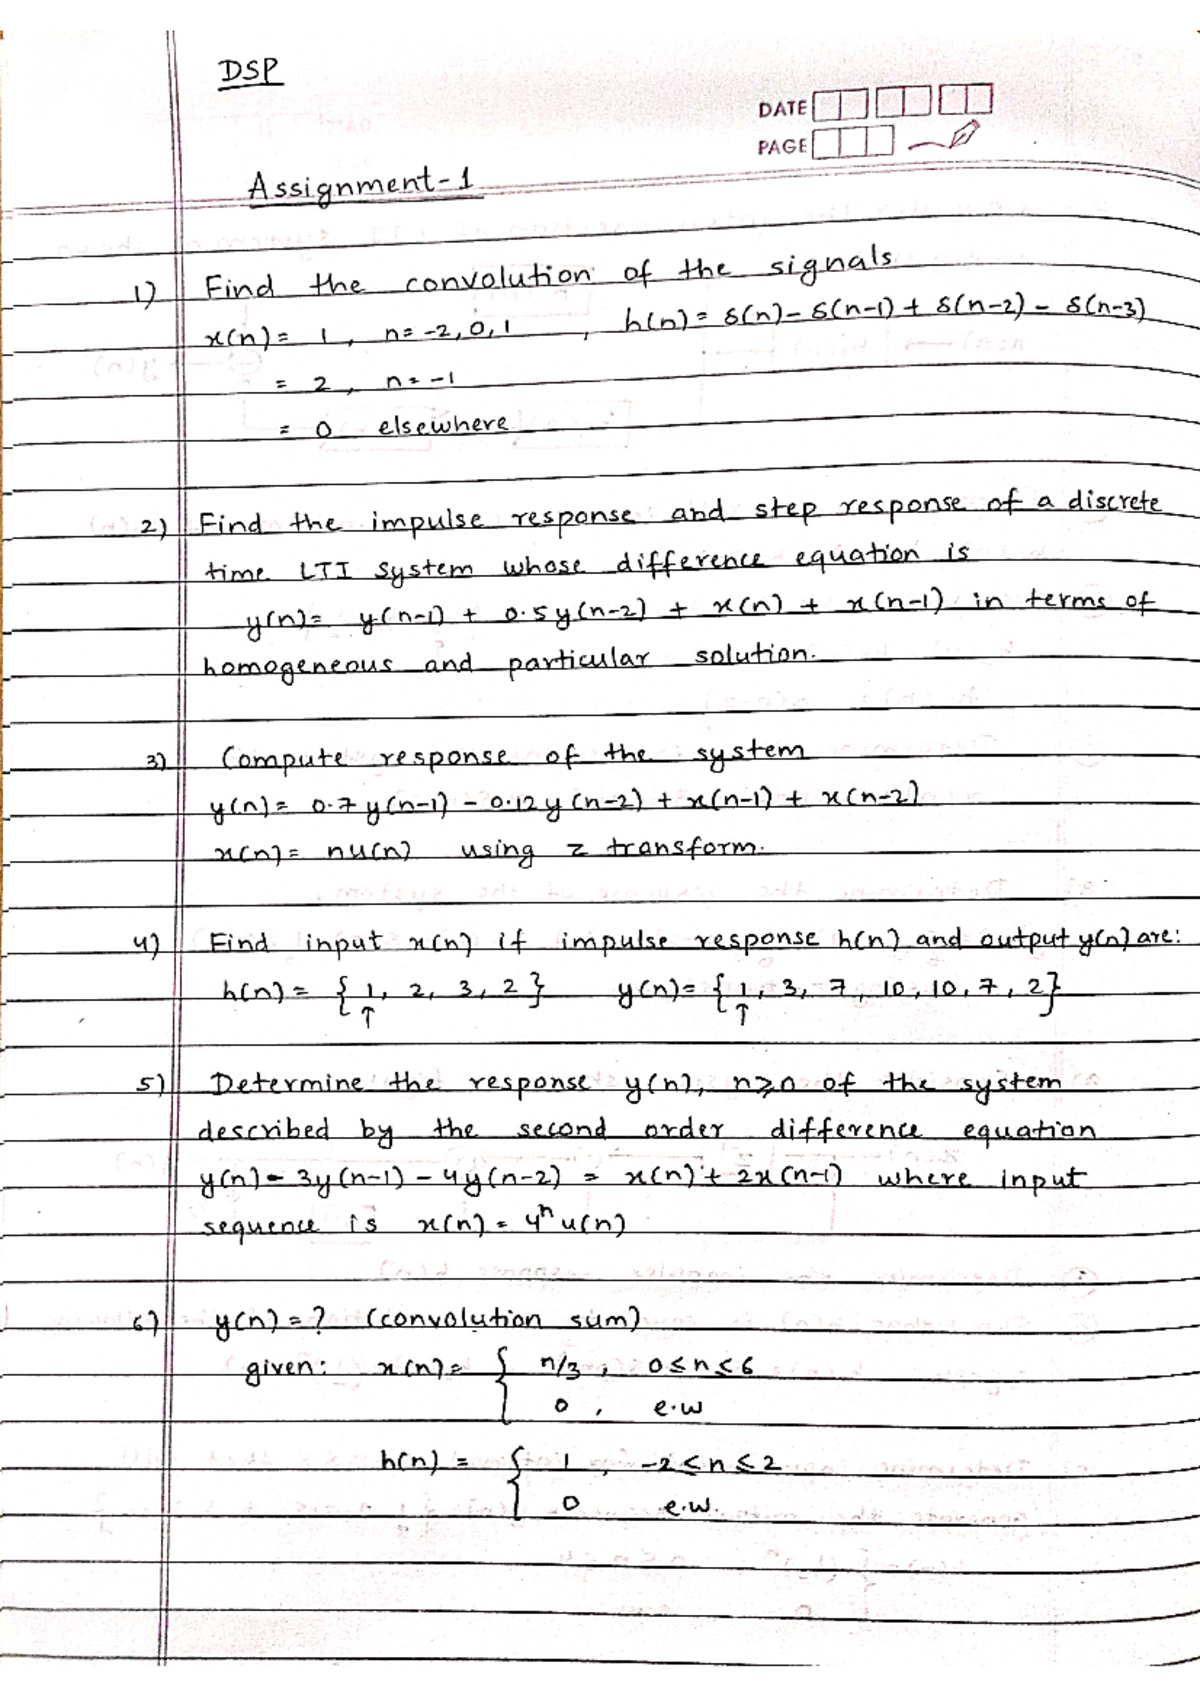 DSP
DATE
PAGE
Assignment-1
1) Find the convolution of the signals
x(n) = 1, n = -2, 0, 1 , h(n) = δ(n) - δ(n-1) + δ(n-2) - δ(n-3)
= 2, n = -1
= 0 elsewhere
2) Find the impulse response and step response of a discrete
time LTI system whose difference equation is
y(n) = y(n-1) + 0.5y(n-2) + x(n) + x(n-1) in terms of
homogeneous and particular solution.
3) Compute response of the system
y(n) = 0.7y(n-1) - 0.12y(n-2) + x(n-1) + x(n-2)
x(n) = nu(n) using z transform.
4) Find input x(n) if impulse response h(n) and output y(n) are:
h(n) = { 1, 2, 3, 2 } y(n) = { 1, 3, 7, 10, 10, 7, 2 }
↑ ↑
5) Determine the response y(n), n≥0 of the system
described by the second order difference equation
y(n) - 3y(n-1) - 4y(n-2) = x(n) + 2x(n-1) where input
sequence is x(n) = 4ⁿu(n)
6) y(n) = ? (convolution sum)
given: x(n) = { n/3, 0≤n≤6
0, e.w
h(n) = { 1, -2≤n≤2
0 e.w.